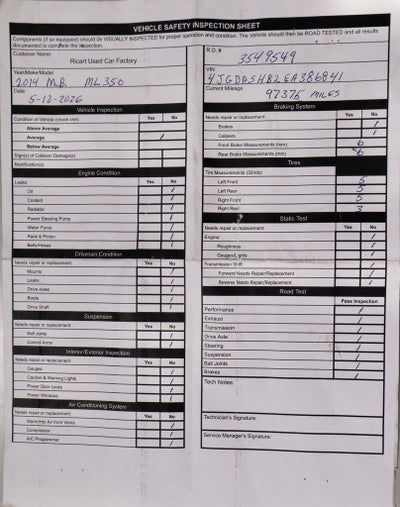 VEHICLE SAFETY INSPECTION SHEET
Components (if so equipped) should be VISUALLY INSPECTED for proper operation and condition. The Vehicle should then be ROAD TESTED and all results
documented to complete the inspection.
Customer Name:
Ricart Used Car Factory
R.O. #
3549549
Year/Make/Model
2014 M.B. ML350
VIN
4JGDA5HB2EA386841
Date
5-12-2026
Current Mileage
97375 MILES
Vehicle Inspection
Condition of Vehicle (check one) Yes No
Above Average
Average /
Below Average
Sign(s) of Collision Damage(s)
Modification(s)
Engine Condition
Leaks: Yes No
Oil /
Coolant /
Radiator /
Power Steering Pump /
Water Pump /
Rack & Pinion /
Belts/Hoses /
Drivetrain Condition
Needs repair or replacement: Yes No
Mounts /
Leaks /
Drive Axles /
Boots /
Drive Shaft /
Suspension
Needs repair or replacement: Yes No
Ball Joints /
Control Arms /
Interior/Exterior Inspection
Needs repair or replacement: Yes No
Gauges /
Caution & Warning Lights /
Power Door Locks /
Power Windows /
Air Conditioning System
Needs repair or replacement: Yes No
Warm/Hot Air from Vents /
Compressor /
A/C Programmer /
Braking System
Needs repair or replacement: Yes No
Brakes /
Calipers /
Front Brake Measurements (mm) 6
Rear Brake Measurements (mm) 6
Tires
Tire Measurements (32nds)
Left Front 5
Left Rear 5
Right Front 5
Right Rear 3
Static Test
Needs repair or replacement: Yes No
Engine /
Roughness /
Gauges/Lights /
Transmission Shift:
Forward Needs Repair/Replacement /
Reverse Needs Repair/Replacement /
Road Test
Pass Inspection
Performance /
Exhaust /
Transmission /
Drive Axle /
Steering /
Suspension /
Ball Joints /
Brakes /
Tech Notes:
Technician's Signature:
Service Manager's Signature: